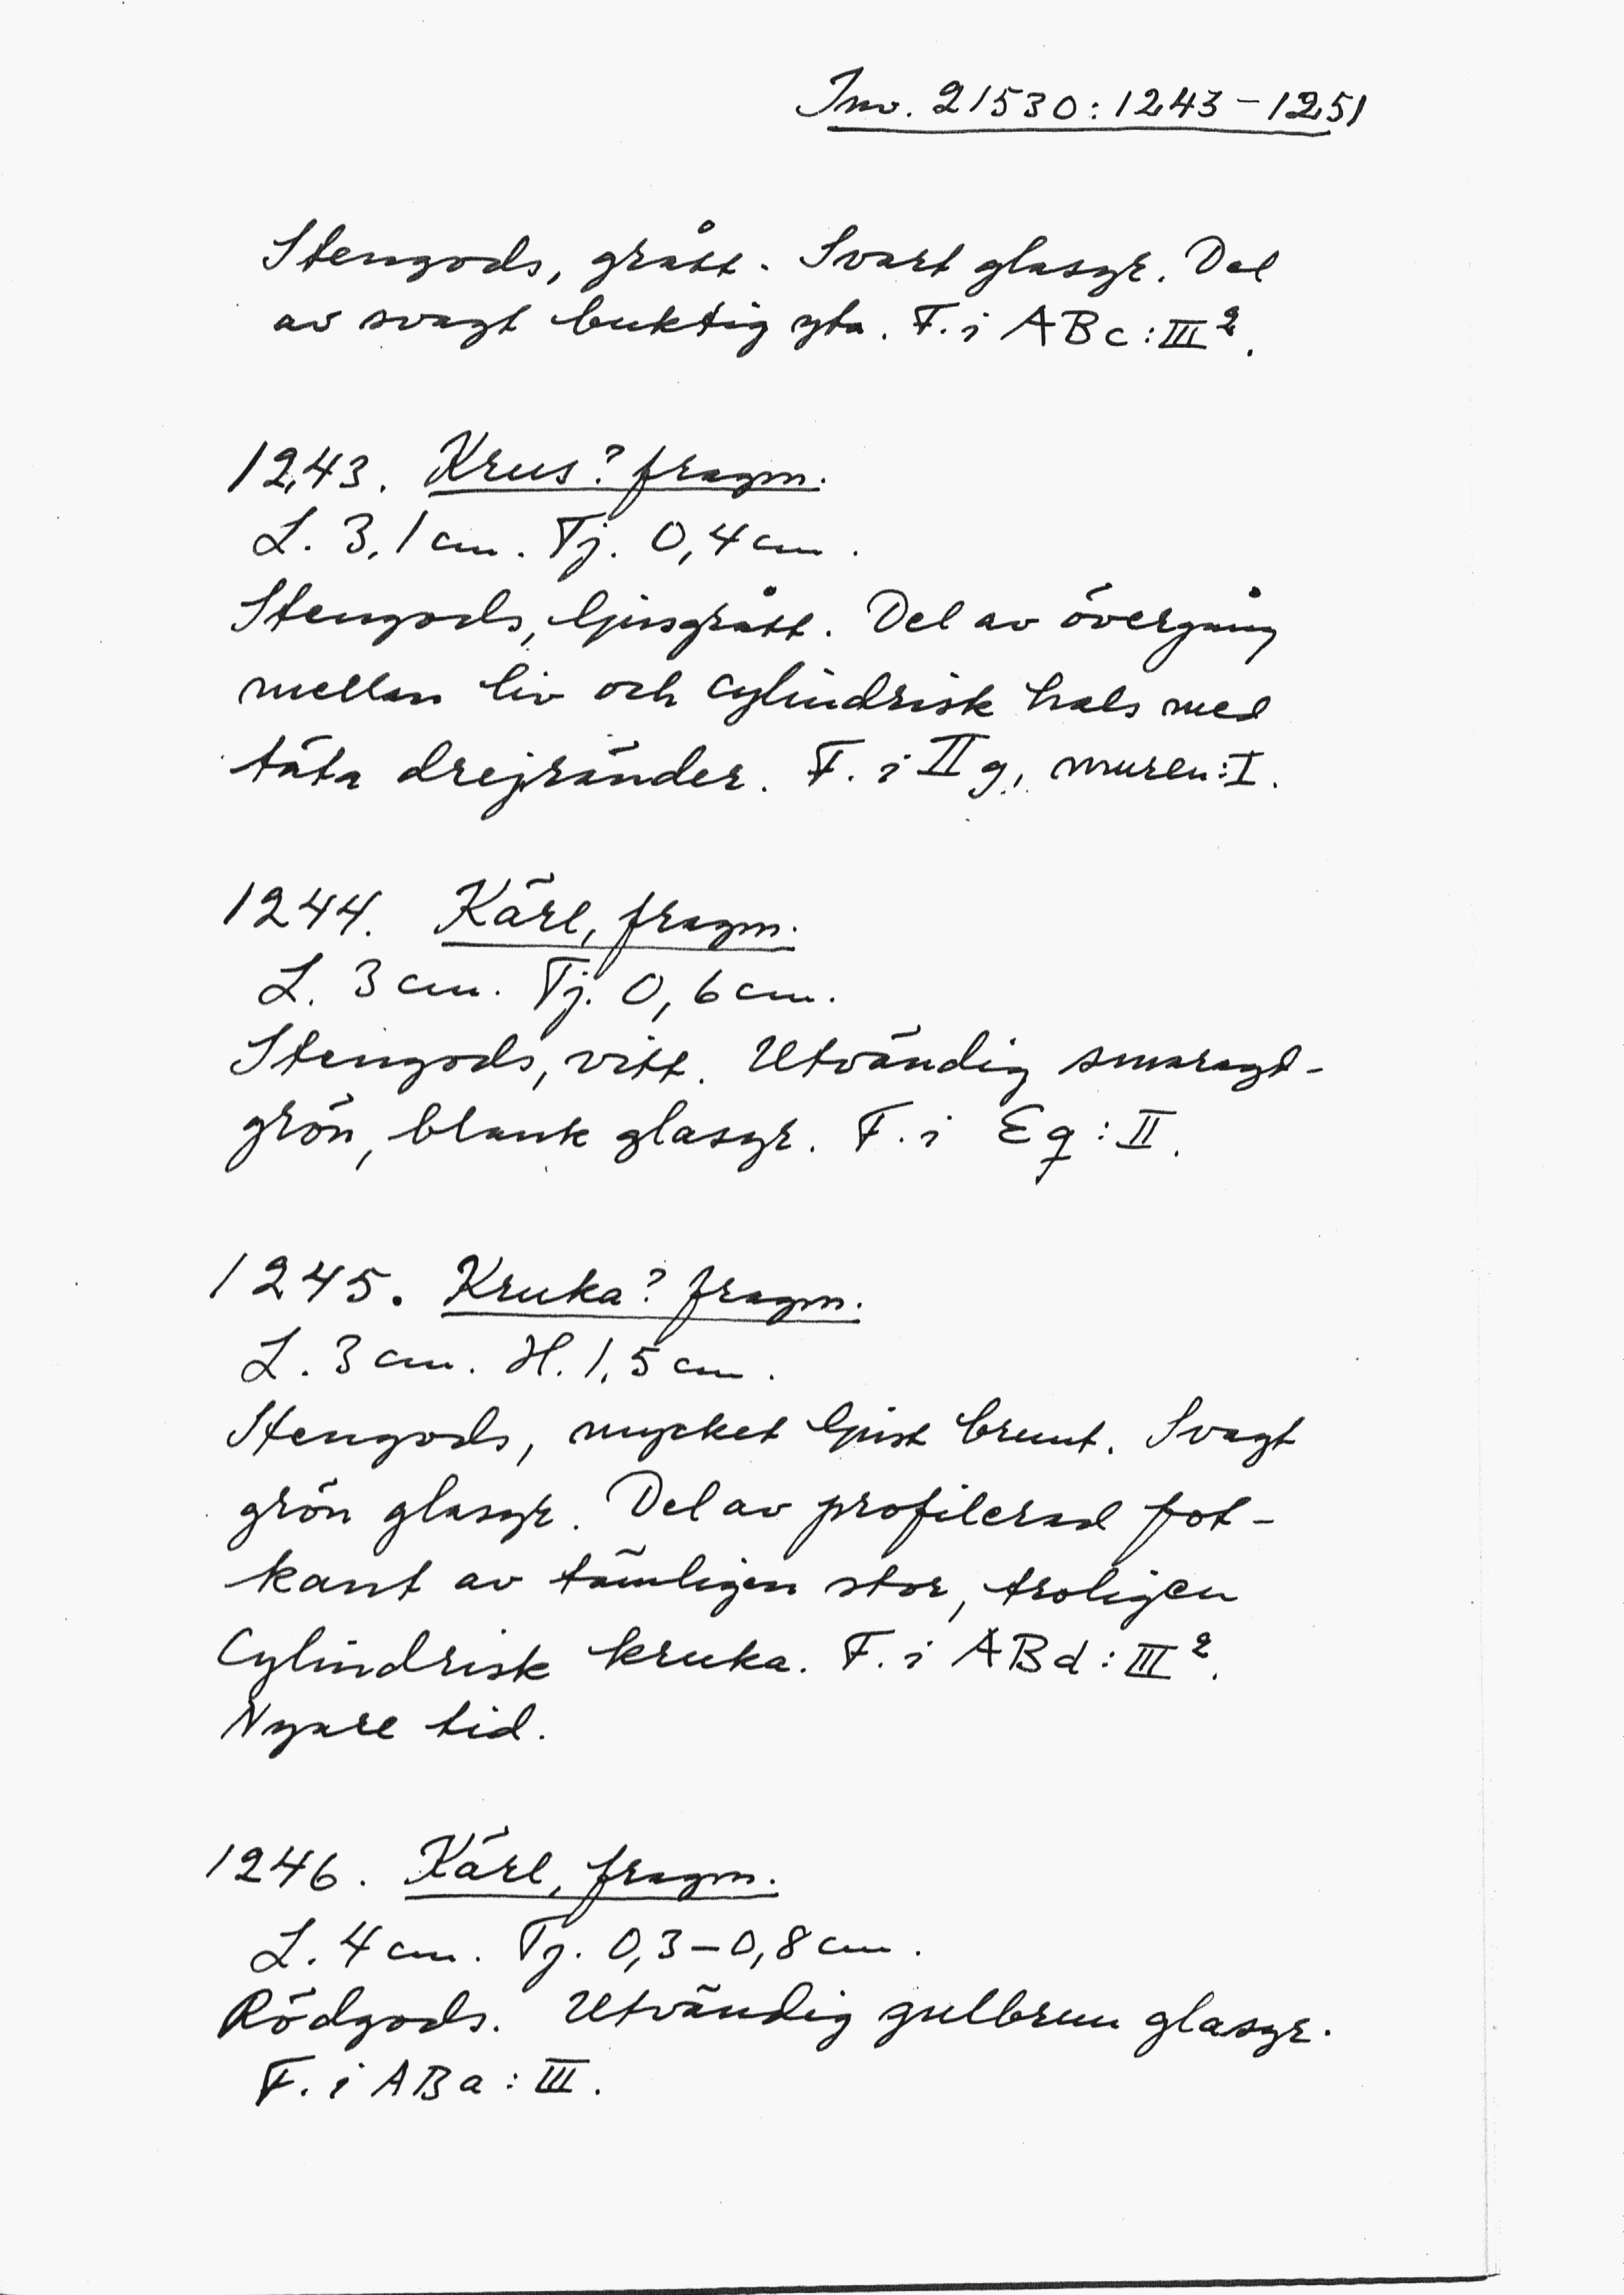 Inv. 21530:1243-1251
Stengods, grått. Svart glasyr. Del
av svagt buktig yta. F. i ABc:III².
1243. Krus? fragm.
L. 3,1 cm. Tj. 0,4 cm.
Stengods, ljusgrått. Del av övergång
mellan liv och cylindrisk hals med
täta drejränder. F. i II g, muren:I.
1244. Kärl, fragm.
L. 3 cm. Tj. 0,6 cm.
Stengods, vitt. Utvändig smaragd-
grön, blank glasyr. F. i Eq:II.
1245. Kruka? fragm.
L. 3 cm. H. 1,5 cm.
Stengods, mycket ljust brunt. Svagt
grön glasyr. Del av profilerad fot-
kant av tämligen stor, troligen
cylindrisk kruka. F. i ABd:III².
Nyare tid.
1246. Kärl, fragm.
L. 4 cm. Tj. 0,3-0,8 cm.
Rödgods. Utvändig gulbrun glasyr.
F. i ABa:III.